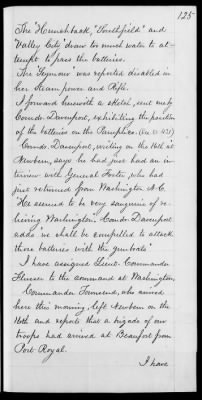 125
The "Hunchback," "Southfield" and
"Valley City" draw too much water to at-
tempt to pass the batteries.
The "Seymour" was reported disabled in
her steam power and Rifle.
I forward herewith a sketch, sent me by
Comdr. Davenport, exhibiting the position
of the batteries on the Pamplico.
Comdr. Davenport, writing on the 16th at
Newbern, says he had just had an in-
terview with General Foster, who had
just returned from Washington N.C.
"He seemed to be very sanguine of re-
lieving Washington." Comdr. Davenport
adds "we shall be compelled to attack
those batteries with the gunboats"
I have assigned Lieut. Commander
Flusser to the command at Washington.
Commander Townsend, who arrived
here this morning, left Newbern on the
16th and reports that a brigade of our
troops had arrived at Beaufort from
Port Royal.
I have